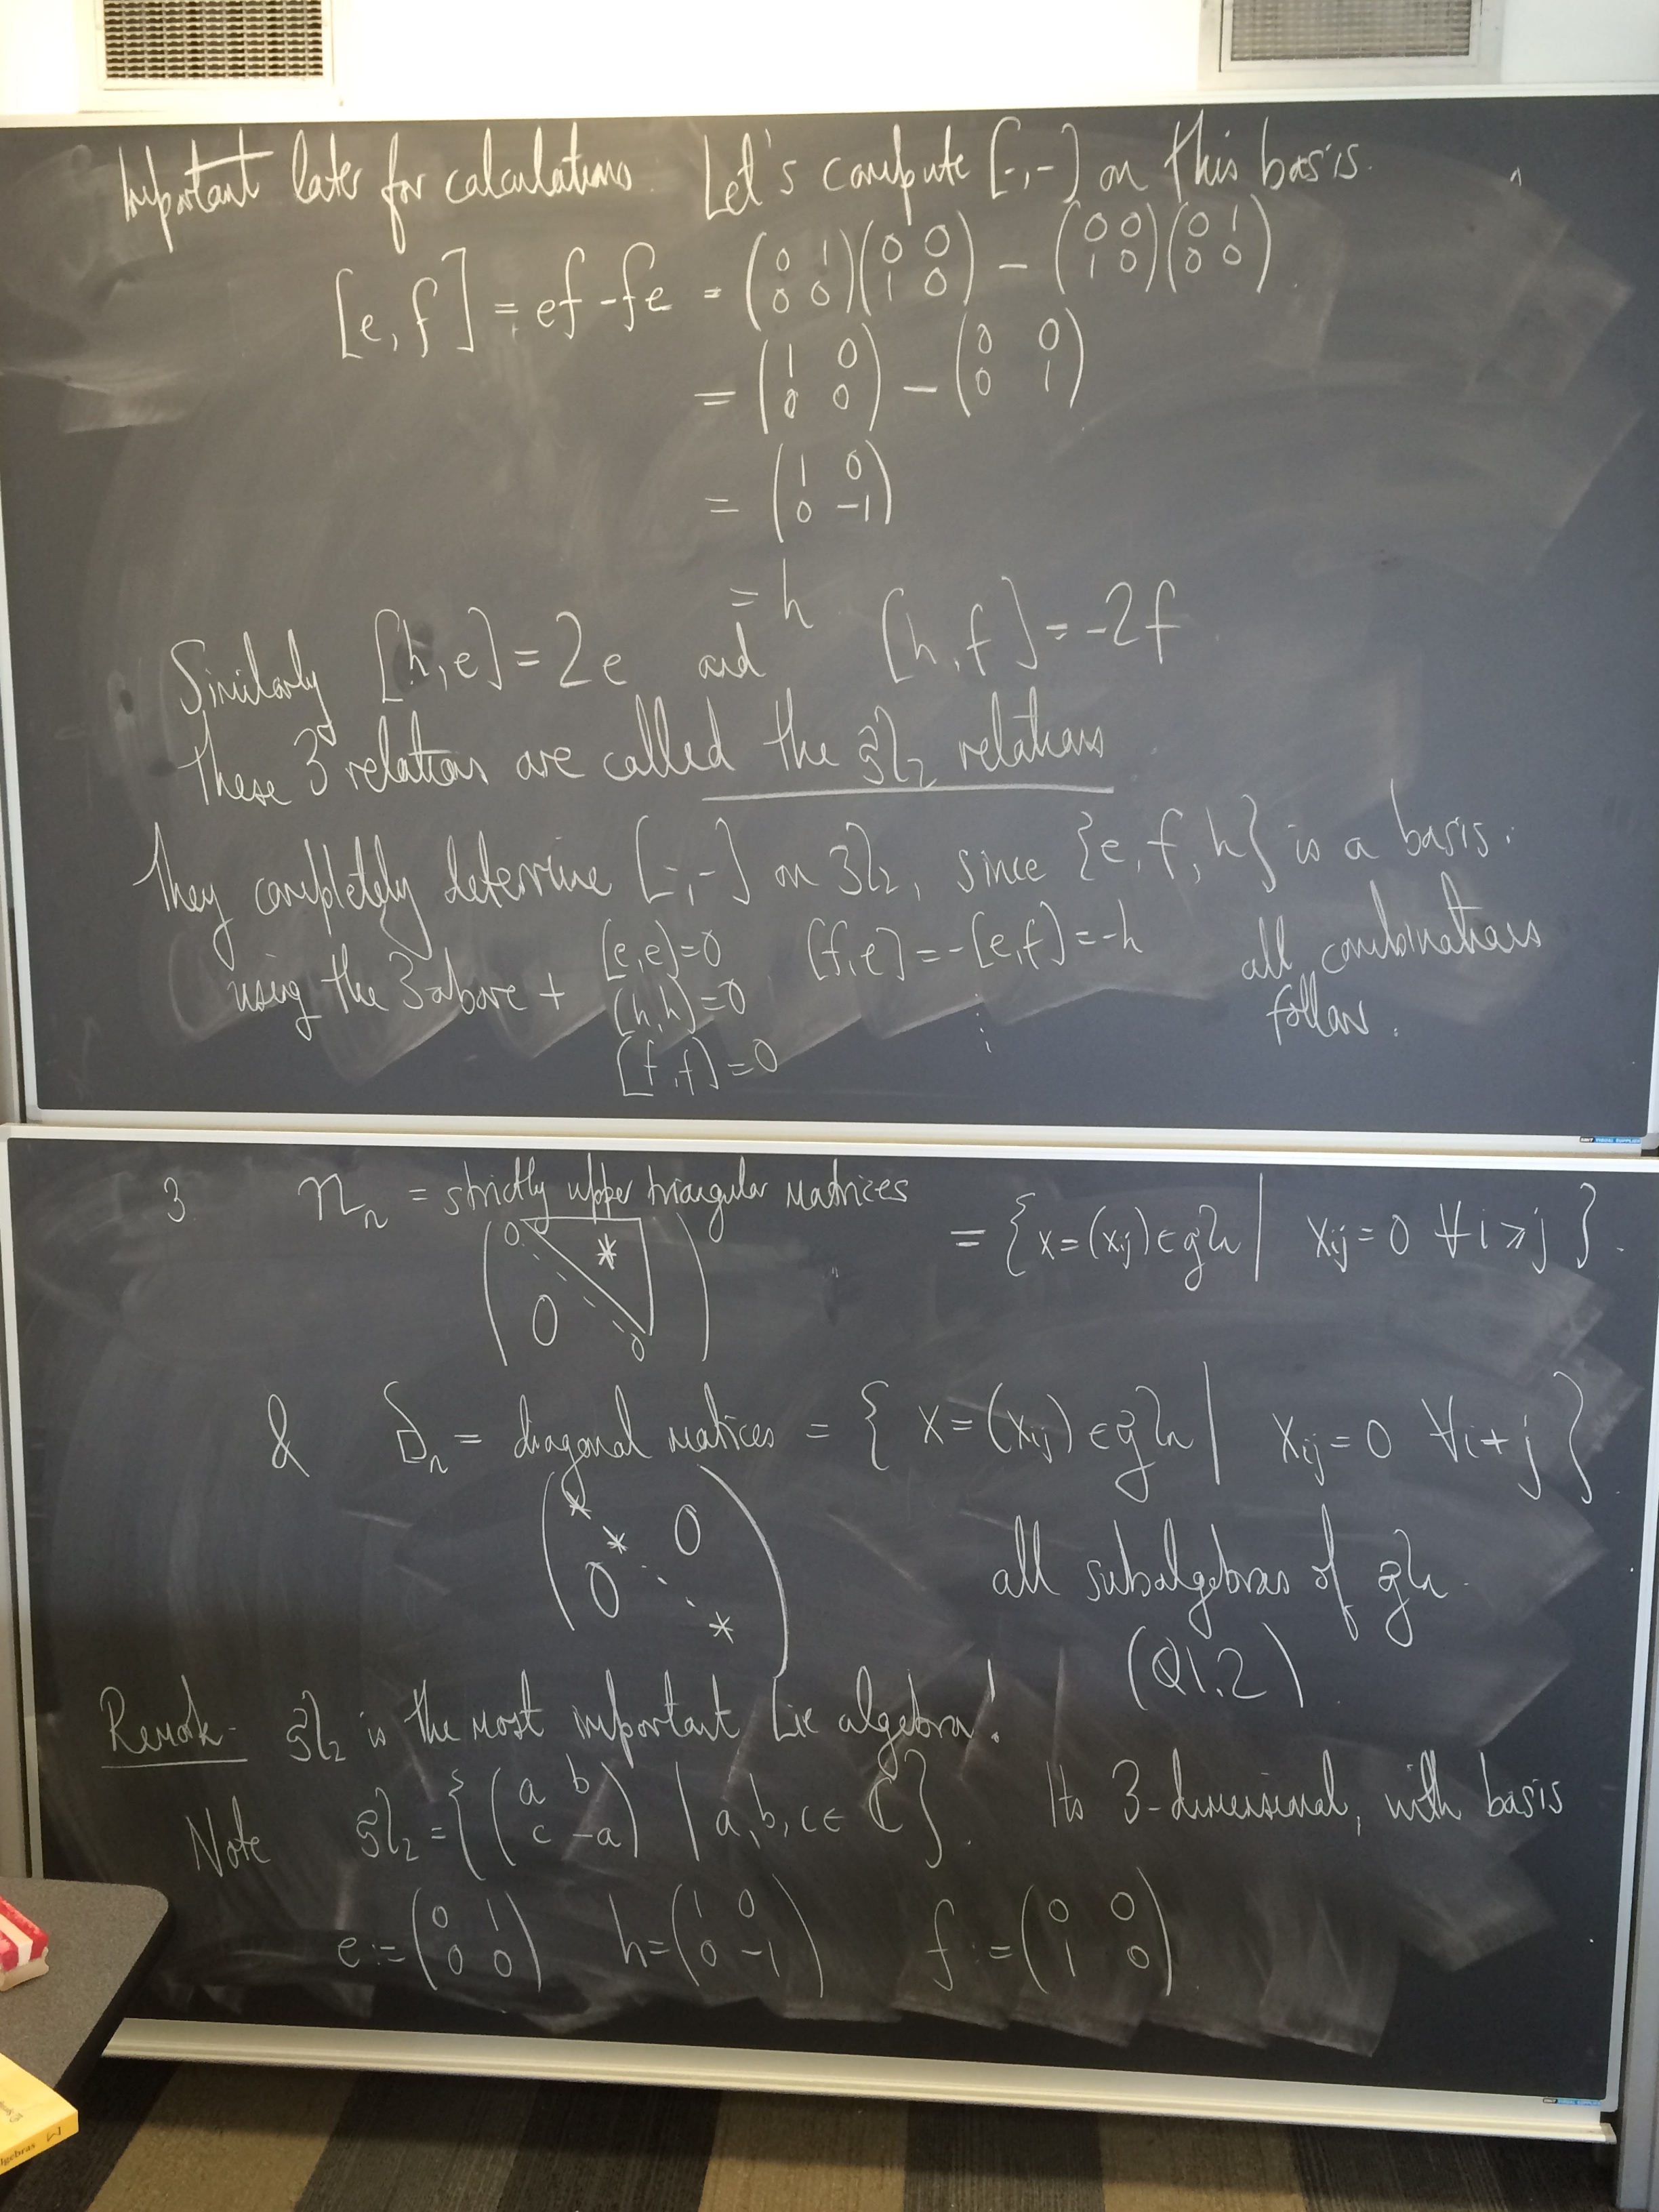 Important later for calculations. Let's compute [-,-] on this basis.
[e,f] = ef - fe = (0 1; 0 0)(0 0; 1 0) - (0 0; 1 0)(0 1; 0 0).
= (1 0; 0 0) - (0 0; 0 1)
= (1 0; 0 -1)
= h
Similarly [h,e] = 2e and [h,f] = -2f
These 3 relations are called the sl₂ relations
They completely determine [-,-] on sl₂, since {e,f,h} is a basis.
using the 3 above + [e,e)=0 [f,e] = -[e,f] = -h all combinations
[h,h]=0 ⋮ follow.
[f,f]=0
3. nₙ = strictly upper triangular matrices = {x=(xᵢⱼ) ∈ glₙ | xᵢⱼ = 0 ∀ i ≥ j}.
(0 * 0 0)
& 𝔡ₙ = diagonal matrices = {x=(xᵢⱼ) ∈ glₙ | xᵢⱼ = 0 ∀ i ≠ j}.
(* * 0 0 ⋱ *)
all subalgebras of glₙ.
(Q1.2)
Remark sl₂ is the most important Lie algebra!
Note sl₂ = {(a b; c -a) | a,b,c ∈ ℂ}. Its 3-dimensional, with basis
e := (0 1; 0 0) h = (1 0; 0 -1) f := (0 0; 1 0)